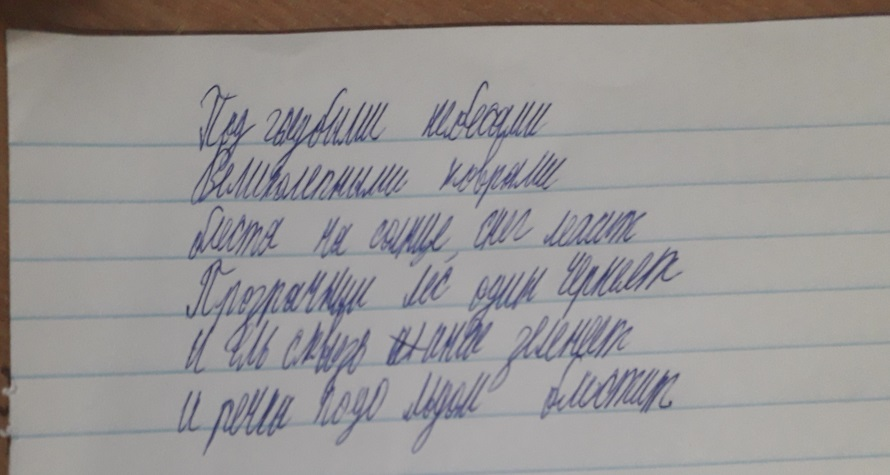 Под голубыми небесами
Великолепными коврами
блестя на солнце, снег лежит
Прозрачный лес один чернеет
и ель сквозь иней зеленеет
и речка подо льдом блестит